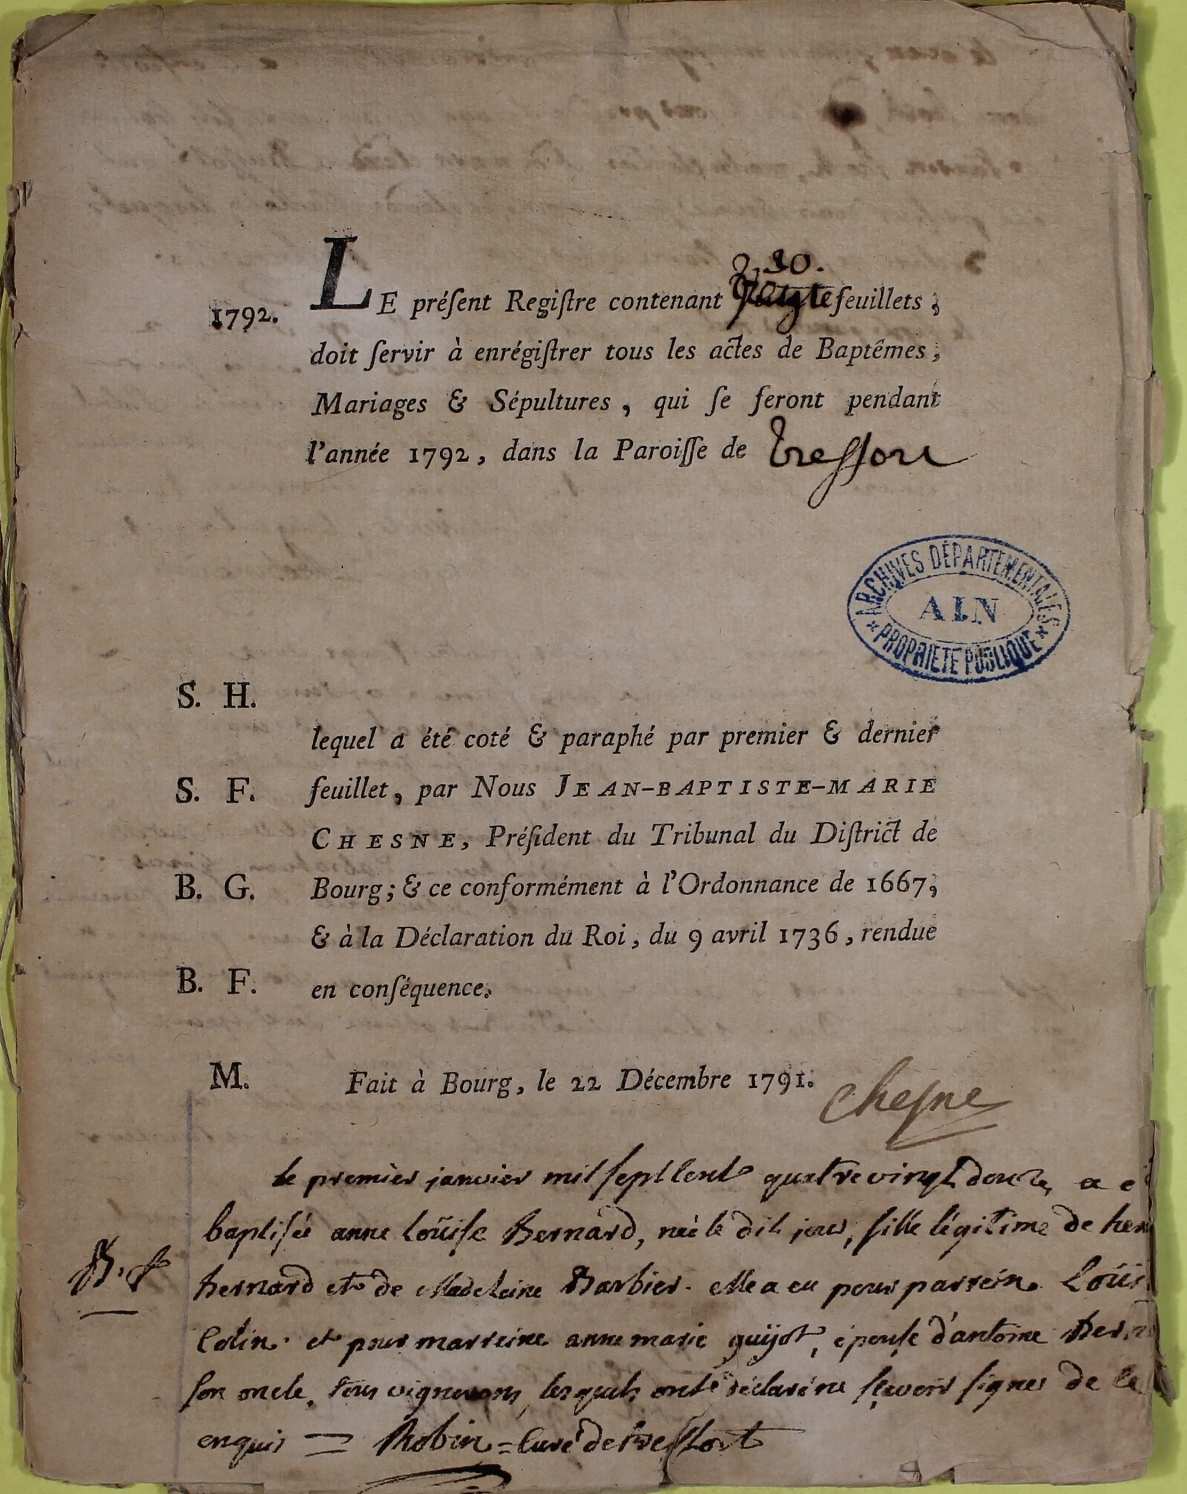 30.
1792. LE préſent Regiſtre contenant feuillets,
doit ſervir à enrégiſtrer tous les actes de Baptêmes,
Mariages & Sépultures, qui ſe feront pendant
l'année 1792, dans la Paroiſſe de Treffort
ARCHIVES DÉPARTEMENTALES
AIN
PROPRIÉTÉ PUBLIQUE
S. H.
lequel a été coté & paraphé par premier & dernier
S. F. feuillet, par Nous JEAN-BAPTISTE-MARIE
CHESNE, Préſident du Tribunal du Diſtrict de
B. G. Bourg; & ce conformément à l'Ordonnance de 1667,
& à la Déclaration du Roi, du 9 avril 1736, rendue
B. F. en conſéquence.
M. Fait à Bourg, le 22 Décembre 1791.
Chesne
le premier janvier mil sept cent quatre vingt douze, a é
baptisée anne Loüise Bernard, née le dit jour, fille légitime de hen
B. f Bernard et de Madeleine Barbier. elle a eu pour parrein Loüis
Colin. et pour marreine anne marie guijot, épouse d'antoine Bern
son oncle, tous vignerons, lesquels ont déclaré ne sçavoir signer de ce
enquis = Robin = Curé de treffort